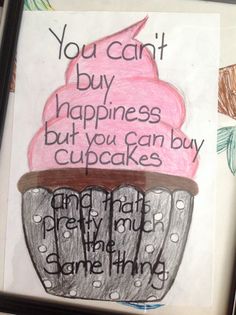 You can't
buy
happiness
but you can buy
cupcakes
and thats
pretty much
the
same thing.